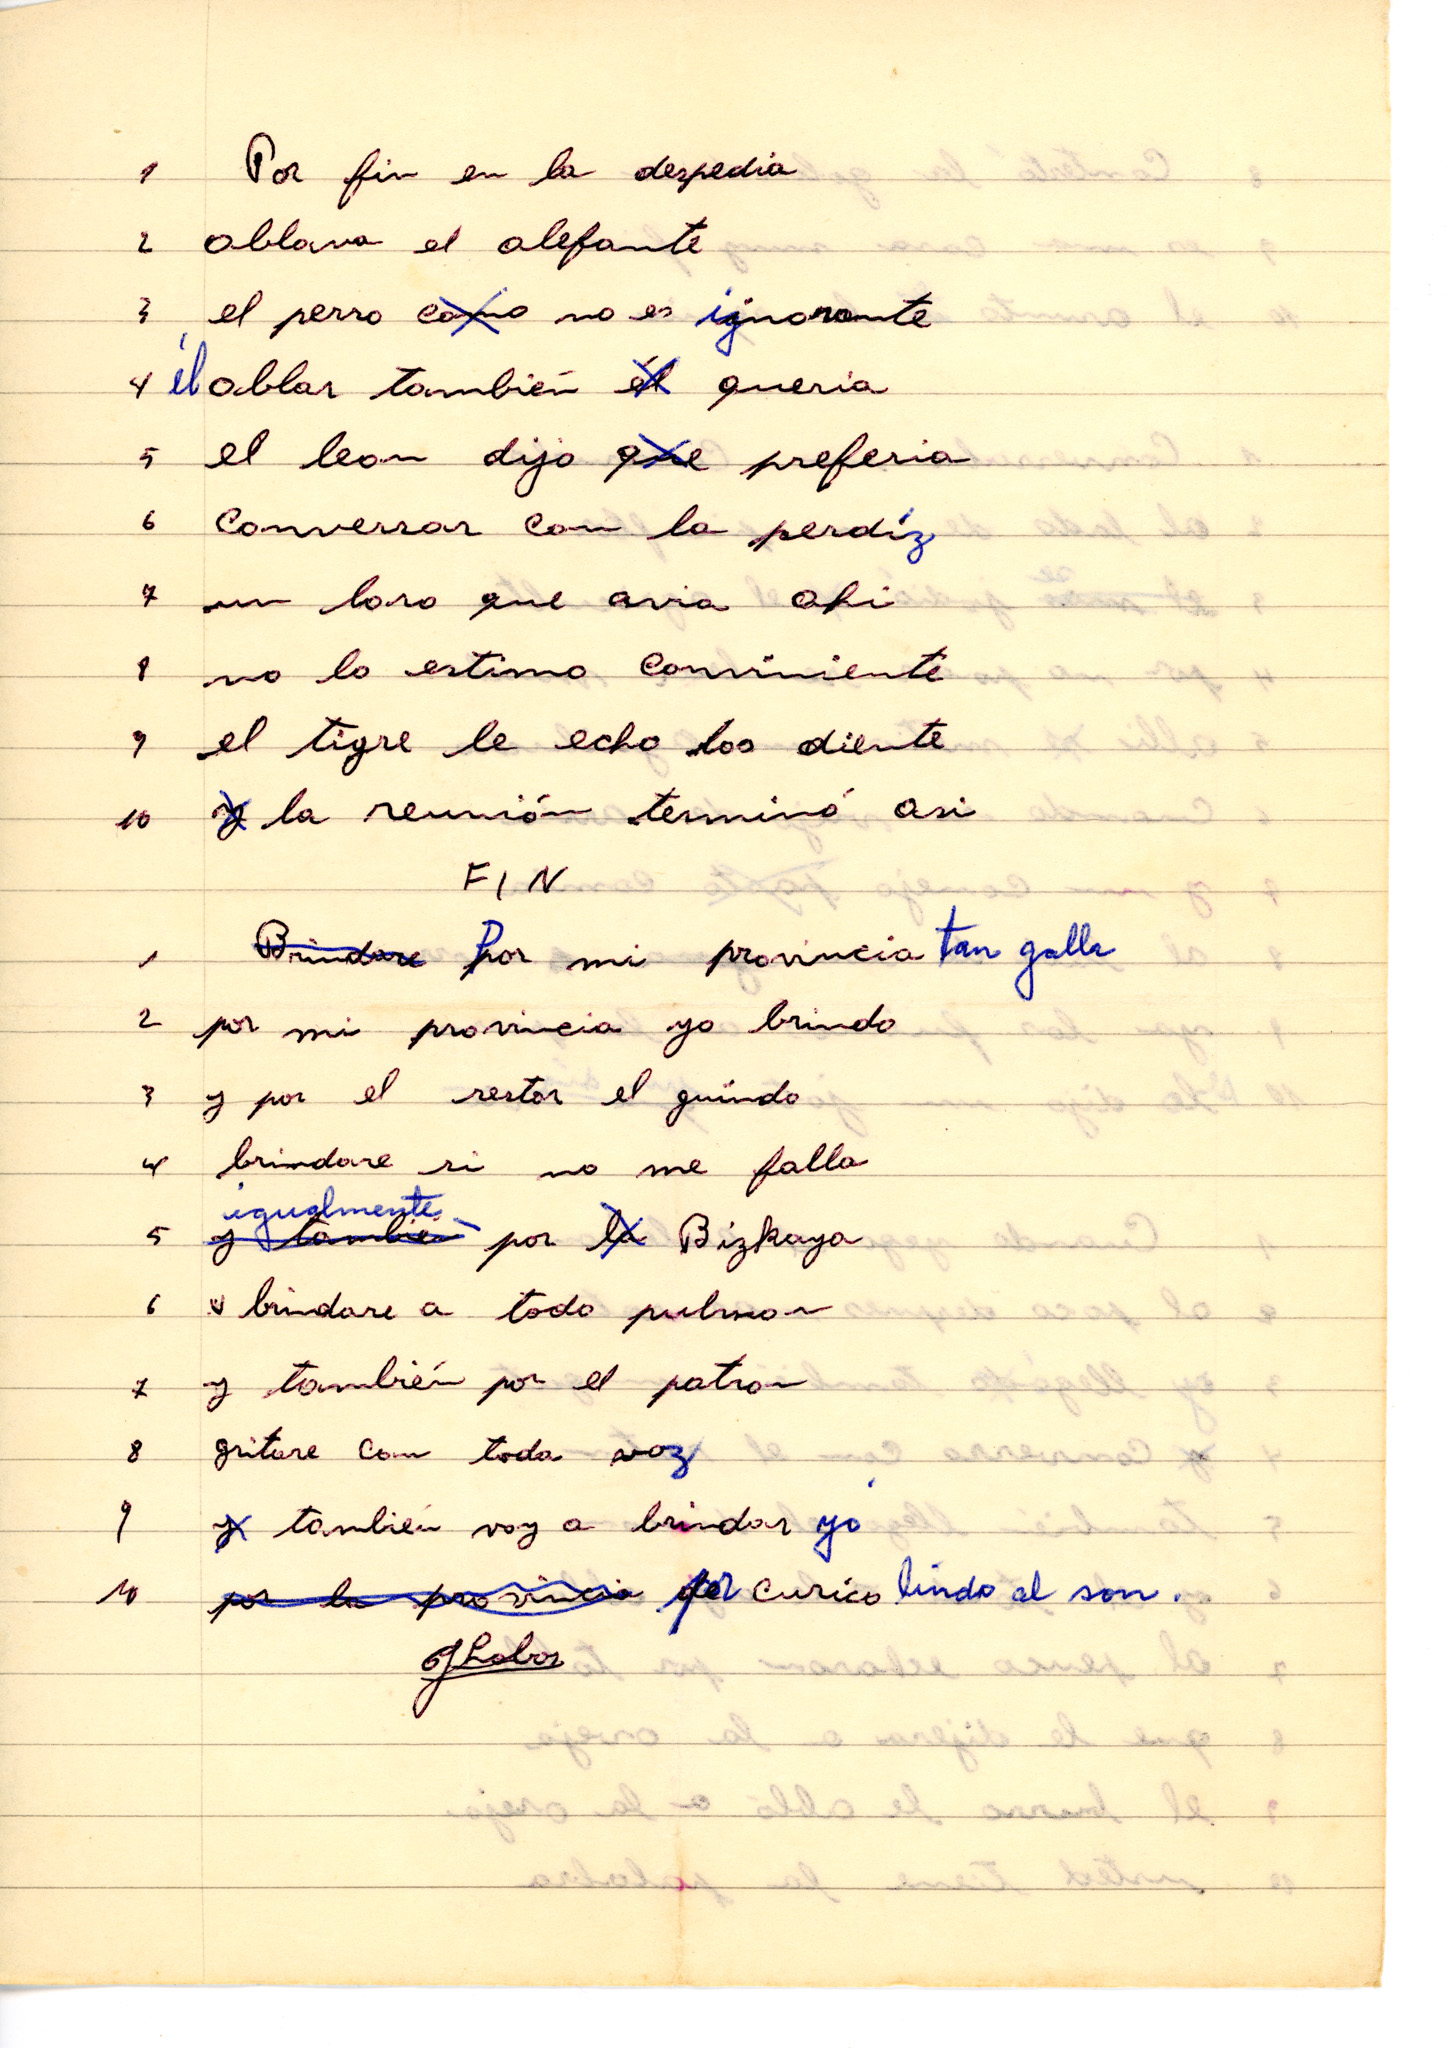 1 Por fin en la despedia
2 ablava el alefante
3 el perro como no es ignorante
4 él ablar también él queria
5 el leon dijo que preferia
6 conversar con la perdíz
7 un loro que avia ahi
8 no lo estimo conviniente
9 el tigre le echo los diente
10 y la reunión terminó asi
FIN
1 Brindare Por mi provincia tan galla
2 por mi provincia yo brindo
3 y por el restor el guindo
4 brindare si no me falla
igualmente
5 y tambien por la Bizkaya
6 brindare a todo pulmon
7 y también por el patron
8 gritare con toda voz
9 y también voy a brindar yó
10 por la provincia por curico lindo al son.
JLobos